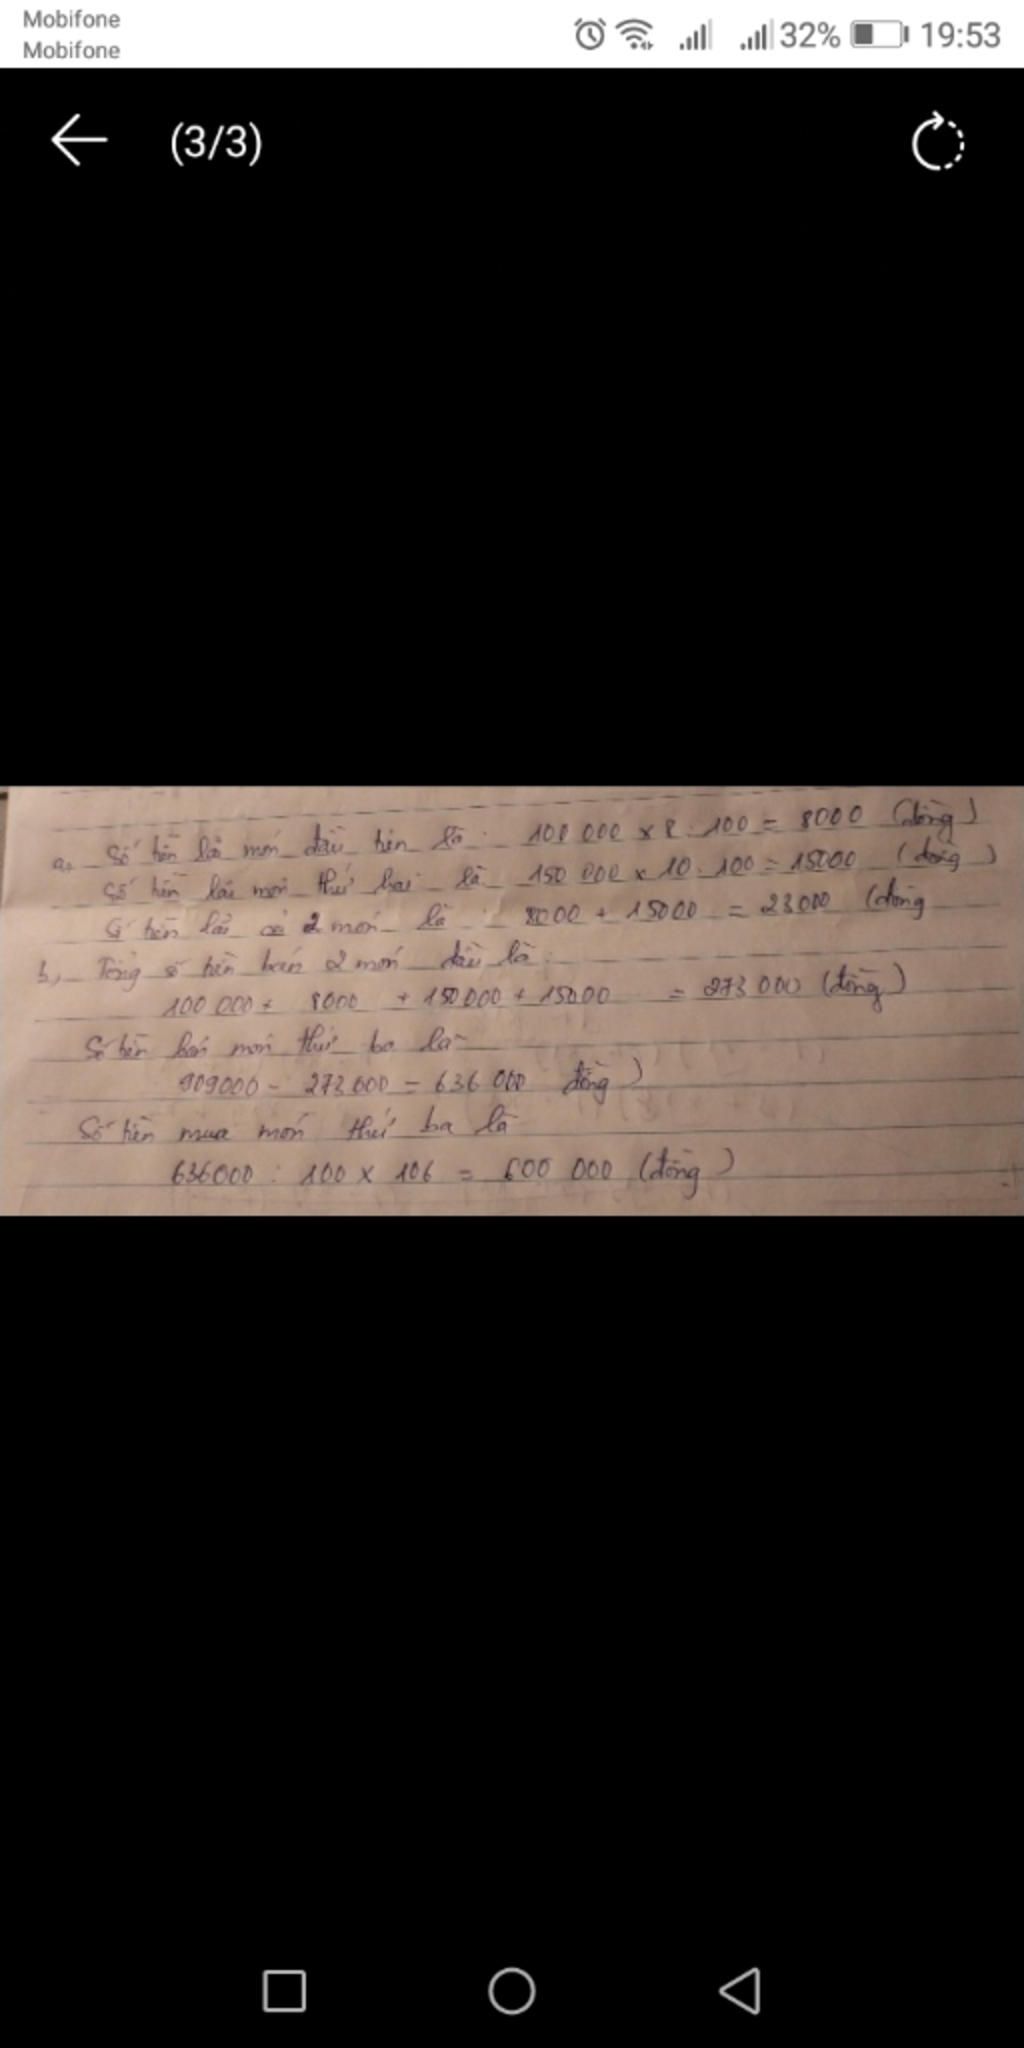 Mobifone
Mobifone
32% 19:53
(3/3)
a, Số tiền lãi món đầu tiên là : 100 000 x 8 : 100 = 8000 (đồng)
Số tiền lãi món thứ hai là 150 000 x 10 : 100 = 15000 (đồng)
Số tiền lãi cả 2 món là : 8000 + 15000 = 23000 (đồng
b, Tổng số tiền bán 2 món đầu là :
100 000 + 8000 + 150000 + 15000 = 273 000 (đồng)
Số tiền bán món thứ ba là
909000 - 273000 = 636 000 đồng)
Số tiền mua món thứ ba là
636000 : 100 x 106 = 600 000 (đồng)